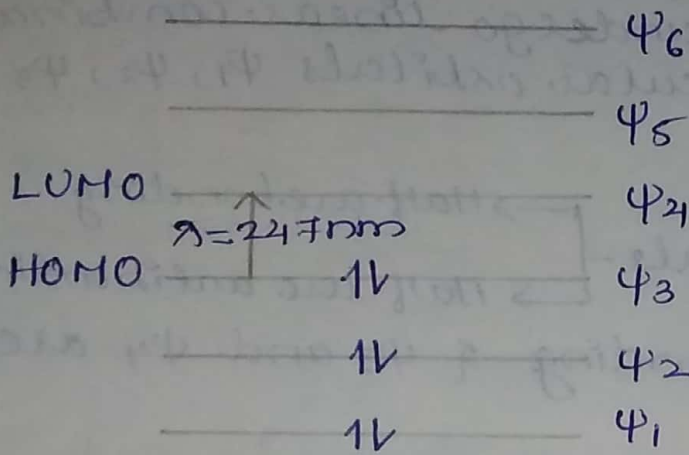 Ψ6
Ψ5
LUMO Ψ4
λ=247nm
HOMO 1L Ψ3
1L Ψ2
1L Ψ1